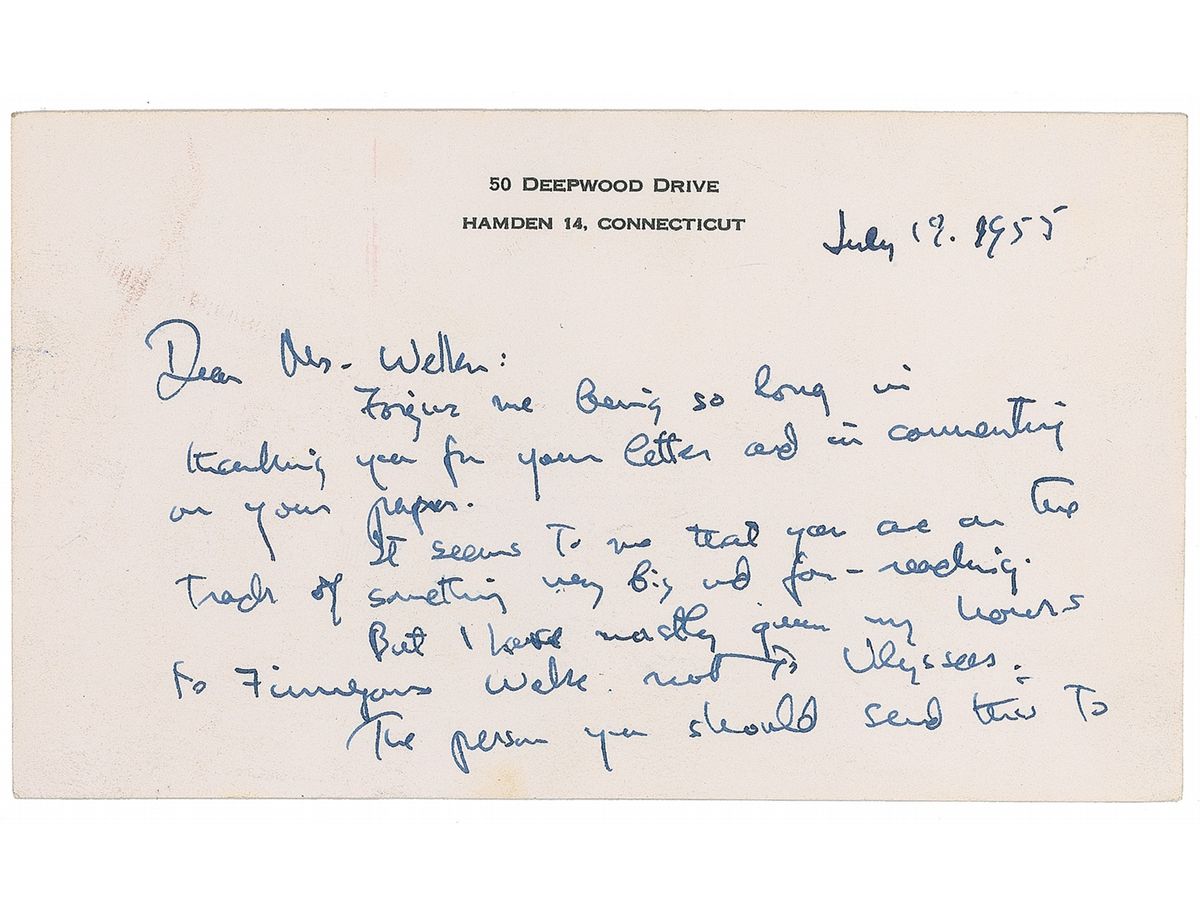 50 DEEPWOOD DRIVE
HAMDEN 14, CONNECTICUT
July 19. 1955
Dear Mrs.
Forgive me being so long in
thanking you for your letter and in commenting
on your paper.
It seems to me that you are on the
track of something very big and far-reaching.
But I have mostly given my hours
to Finnegans Wake. not to Ulysses.
The person you should send this to